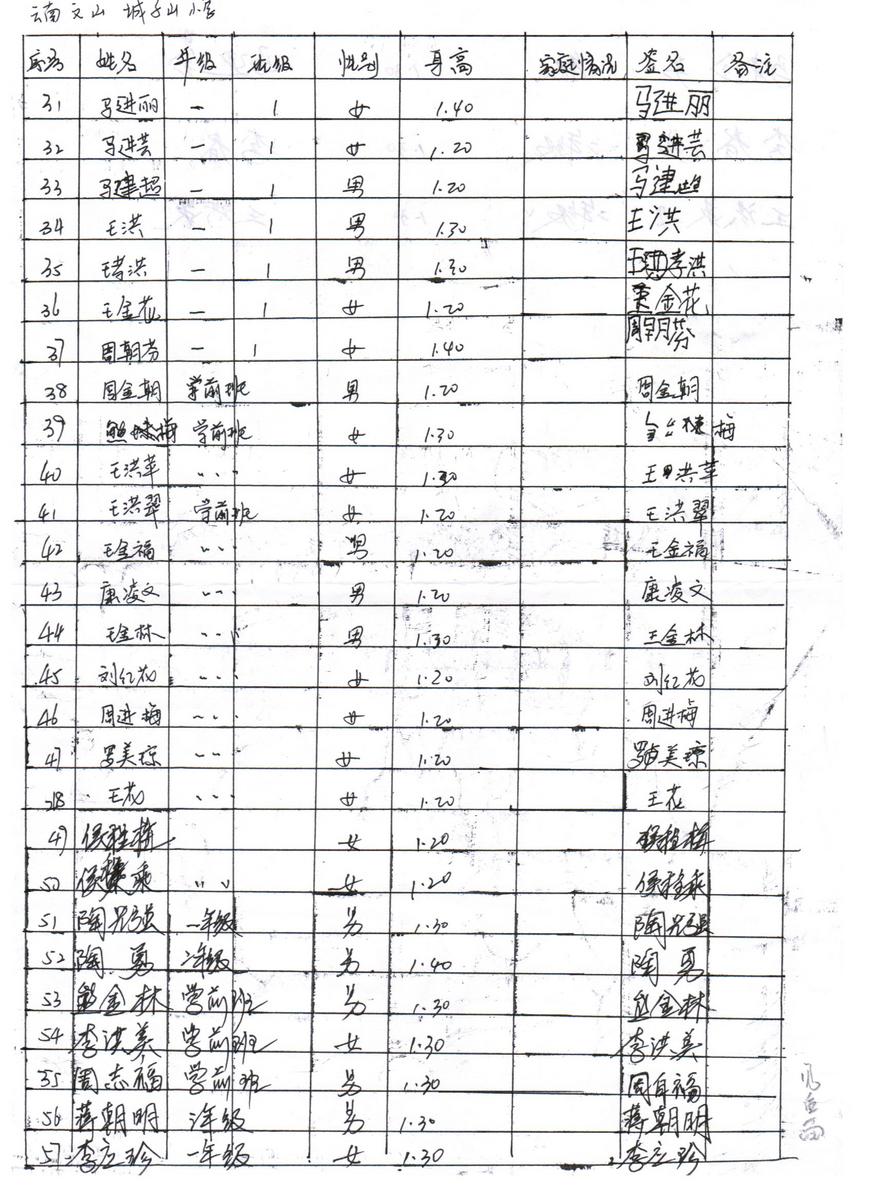 云南文山 城子山小学
序号 姓名 年级 班级 性别 身高 家庭情况 签名 备注
31 马进丽 一 1 女 1.40 马进丽
32 马进芸 一 1 女 1.20 马进芸
33 马建超 一 1 男 1.20 马建超
34 王洪 一 1 男 1.30 王洪
35 一 1 男 1.30
36 王金花 一 1 女 1.20 王金花
37 周朝芬 一 1 女 1.40 周朝芬
38 周金朝 学前班 男 1.20 周金朝
39 学前班 女 1.30
40 王洪苹 〃 女 1.30 王洪苹
41 王洪翠 学前班 女 1.20 王洪翠
42 王金福 〃 男 1.20 王金福
43 康凌文 〃 男 1.20 康凌文
44 王金林 〃 男 1.30 王金林
45 刘红花 〃 女 1.20 刘红花
46 周进梅 〃 女 1.20 周进梅
47 罗美琼 〃 女 1.20 罗美琼
48 王花 〃 女 1.20 王花
49 女 1.20
50 〃 女 1.20
51 陶兴强 一年级 男 1.30 陶兴强
52 陶勇 2年级 男 1.40 陶勇
53 熊金林 学前班 男 1.30 熊金林
54 李洪美 学前班 女 1.30 李洪美
55 周志福 学前班 男 1.30
56 蒋朝明 2年级 男 1.30 蒋朝明
57 李应珍 一年级 女 1.30 李应珍
见鱼面